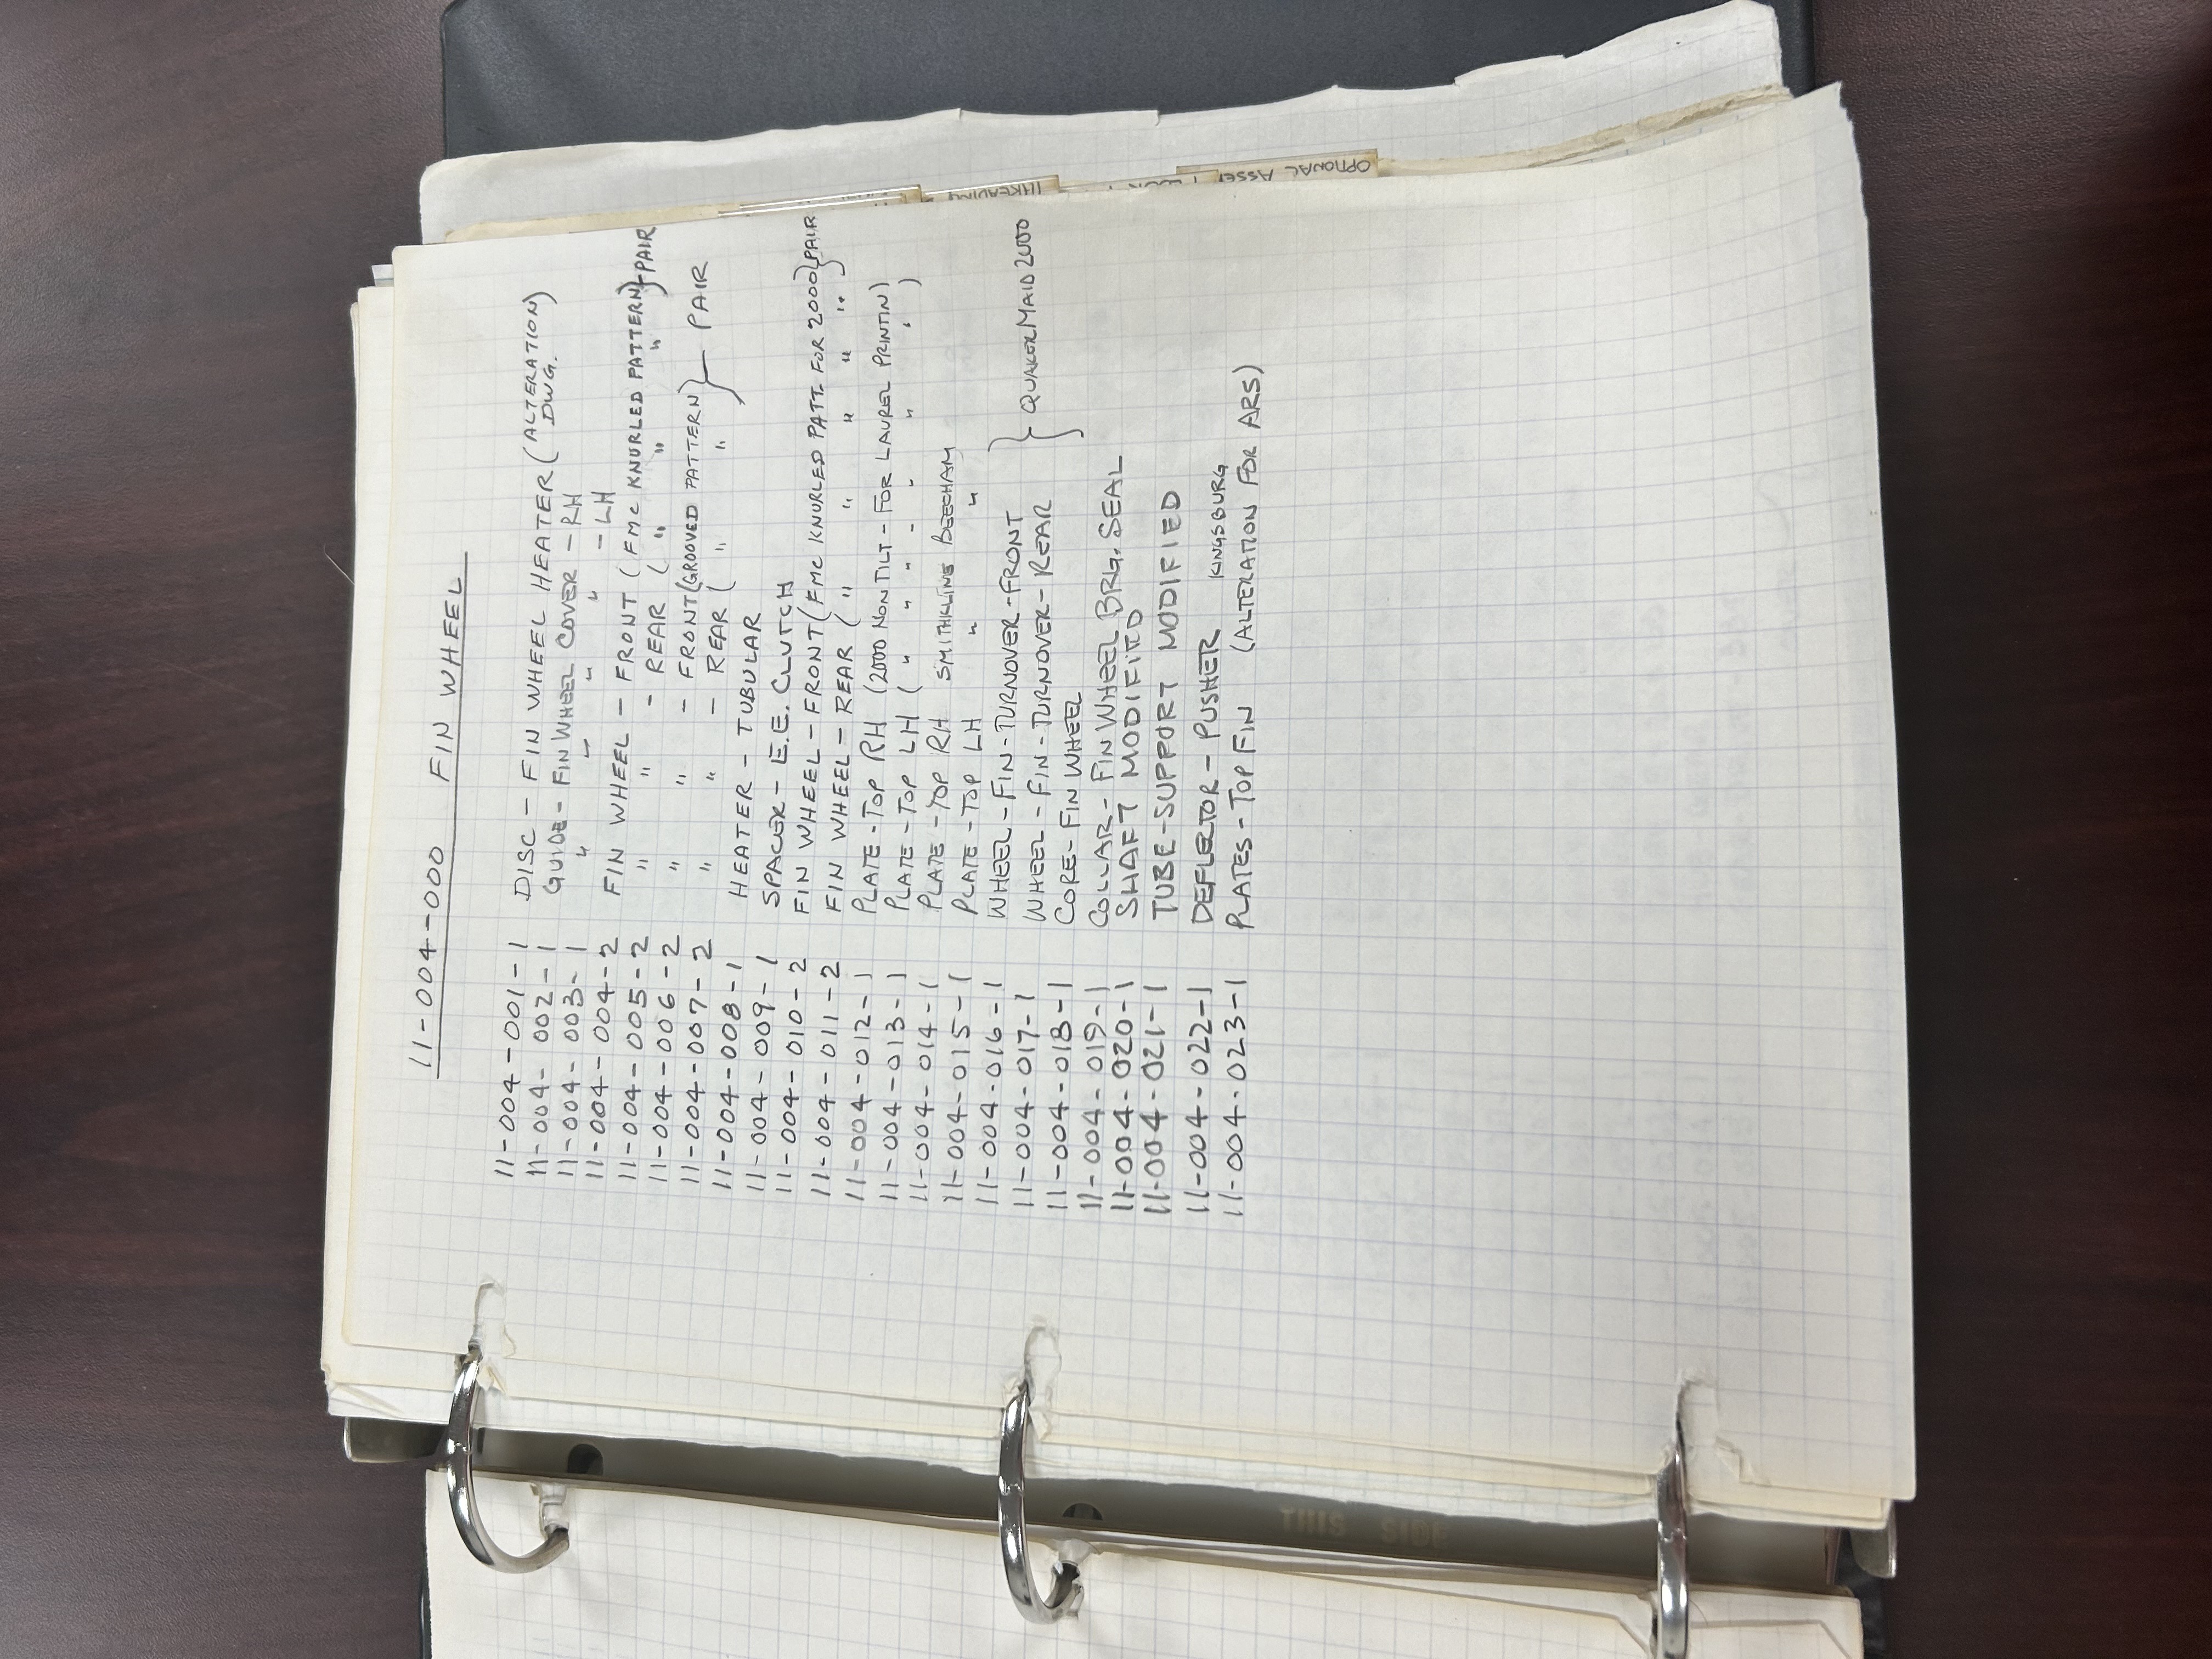 11-004-000 FIN WHEEL
11-004-001-1 DISC - FIN WHEEL HEATER (ALTERATION DWG.)
11-004-002-1 GUIDE - FIN WHEEL COVER - RH
11-004-003-1 " " " " - LH
11-004-004-2 FIN WHEEL - FRONT (FMC KNURLED PATTERN) } PAIR
11-004-005-2 " " - REAR ( " " "
11-004-006-2 " " - FRONT (GROOVED PATTERN) } PAIR
11-004-007-2 " " - REAR ( " "
11-004-008-1 HEATER - TUBULAR
11-004-009-1 SPACER - E.E. CLUTCH
11-004-010-2 FIN WHEEL - FRONT (FMC KNURLED PATT. FOR 2000 } PAIR
11-004-011-2 FIN WHEEL - REAR ( " " " " "
11-004-012-1 PLATE - TOP RH (2000 NON TILT - FOR LAUREL PRINTIN)
11-004-013-1 PLATE - TOP LH ( " " " - " " " )
11-004-014-1 PLATE - TOP RH SMITHKLINE BEECHAM
11-004-015-1 PLATE - TOP LH " "
11-004-016-1 WHEEL - FIN - TURNOVER - FRONT
11-004-017-1 WHEEL - FIN - TURNOVER - REAR } QUAKER MAID 2000
11-004-018-1 CORE - FIN WHEEL
11-004-019-1 COLLAR - FIN WHEEL BRG. SEAL
11-004-020-1 SHAFT MODIFIED
11-004-021-1 TUBE-SUPPORT MODIFIED
11-004-022-1 DEFLECTOR - PUSHER KINGSBURG
11-004-023-1 PLATES - TOP FIN (ALTERATION FOR ARS)
THREADING
OPTIONAL ASSE
THIS SIDE